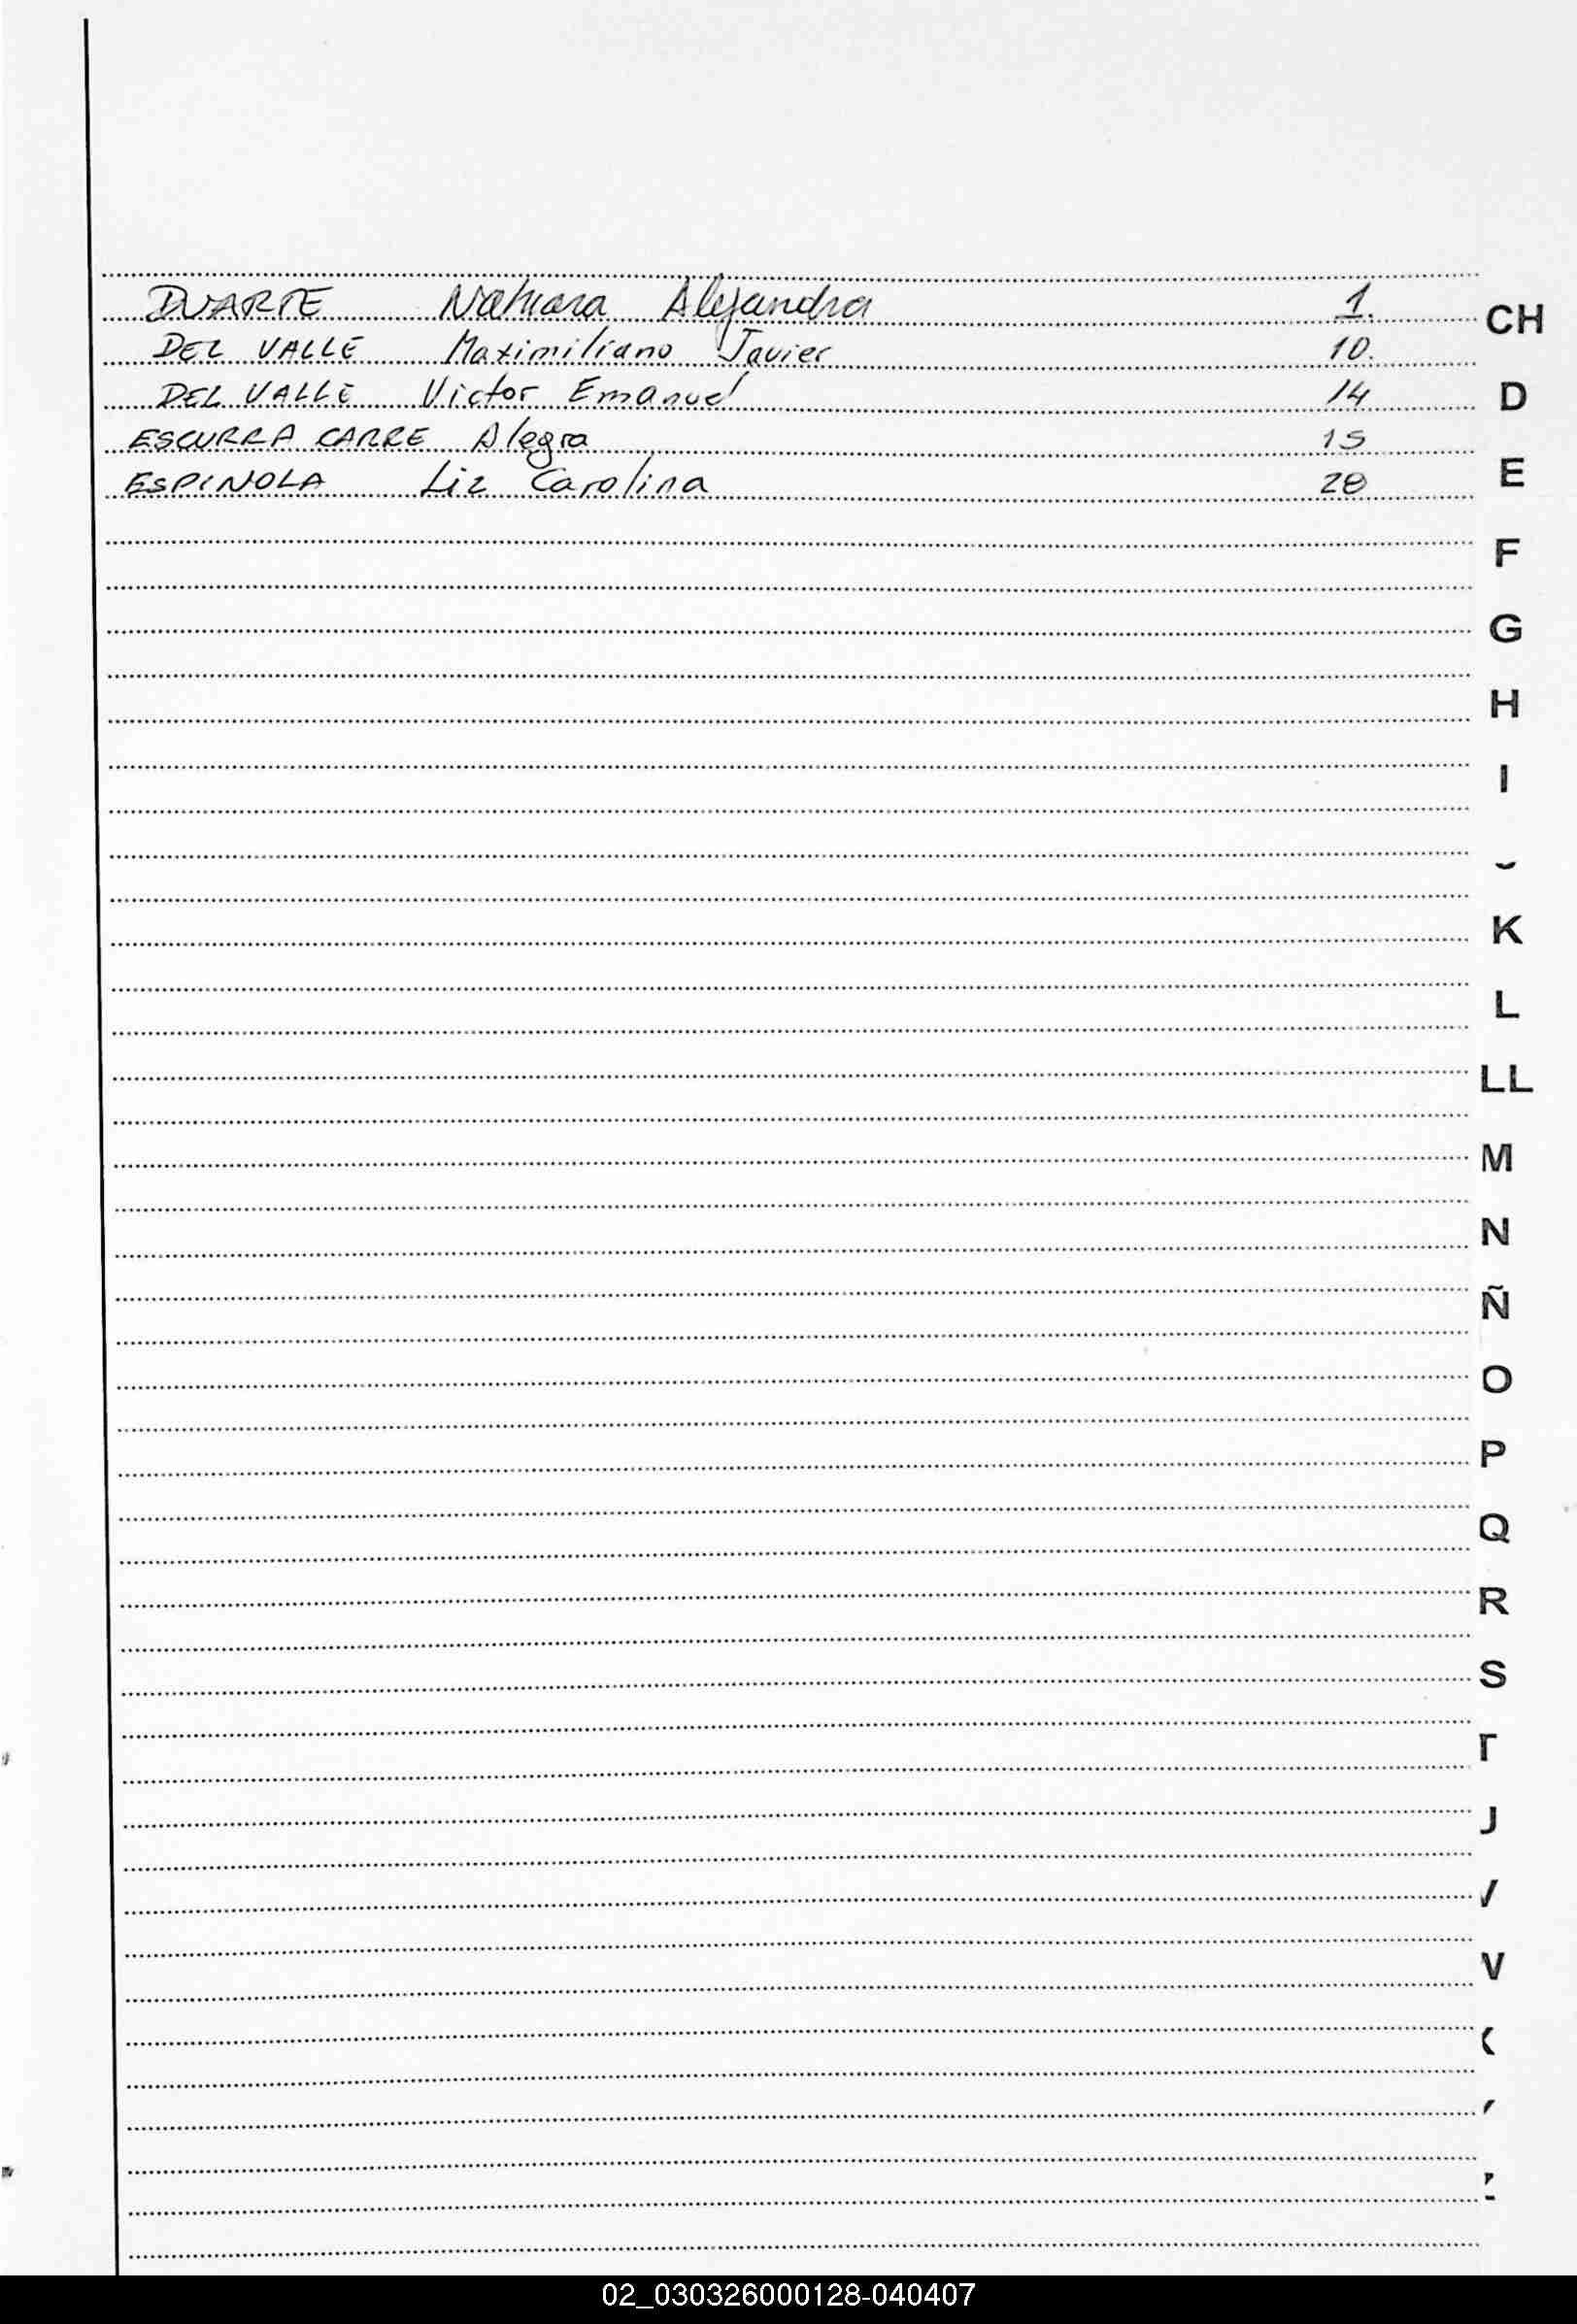 DUARTE Nahiara Alejandra 1.
CH
DEL VALLE Maximiliano Javier 10.
DEL VALLE Victor Emanuel 14
D
ESCURRA CARRE Alegra 15
ESPINOLA Liz Carolina 28
E
F
G
H
I
K
L
LL
M
N
Ñ
O
P
Q
R
S
02_030326000128-040407